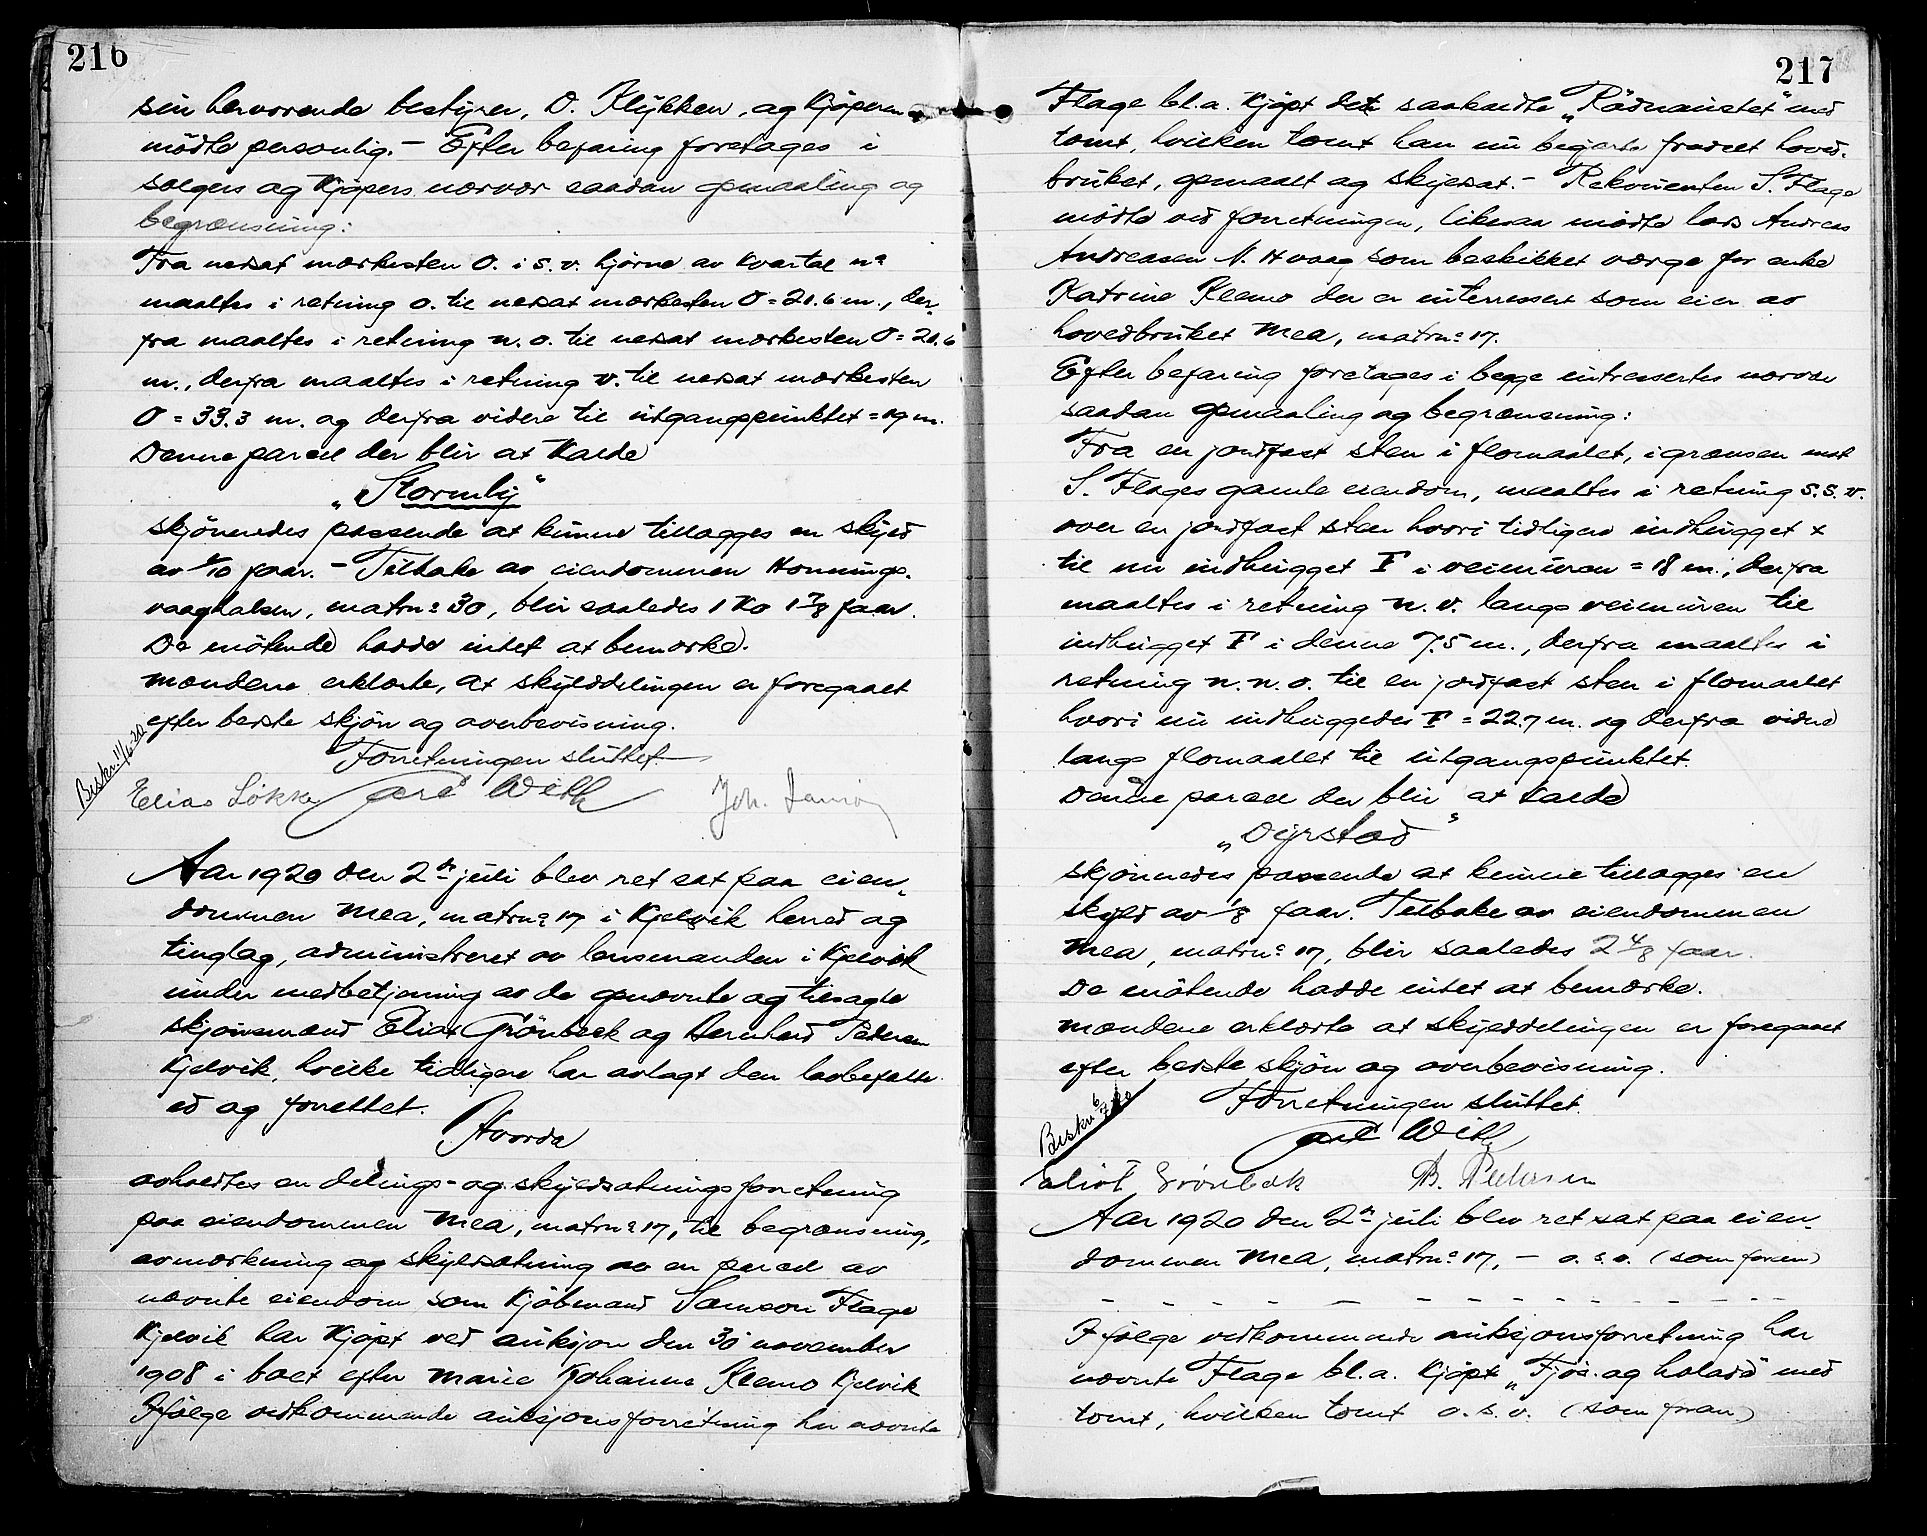 216
sin herværende bestyrer, O. Klykken, og kjøperen
mødte personlig. – Efter befaring foretages i
sælgers og kjøpers nærvær saadan opmaaling og
begrænsning:
Fra nedsat merkesten O. i s.v. hjørne av kvartal no
maaltes i retning o. til nedsat merkesten O = 20.6 m., der-
fra maaltes i retning n.o. til nedsat merkesten O = 20.6
m., derfra maaltes i retning v. til nedsat merkesten
O = 33.3 m. og derfra videre til utgangspunktet = 19 m.
Denne parcel der blir at kalde
„Stormly"
skjønnedes passende at kunne tillægges en skyld
av 1/10 øre. – Tilbake av eiendommen Honnings-
vaaghalsen, matrno 30, blir saaledes 1 ko 1 7/8 faar.
De møtende hadde intet at bemerke.
Mændene erklærte, at skylddelingen er foregaaet
efter bedste skjøn og overbevisning.
Forretningen sluttet.
Beskr. 11/6 20
Elias Løkke Carl With Joh.
Aar 1920 den 2den juli blev ret sat paa eien-
dommen Mea, matrno 17 i Kjelvik herred og
tinglag, administreret av lensmanden i Kjelvik
under medbetjening av de opnævnte og tilsagte
skjønsmænd Eliot Grönbeck og Bernhard Pedersen
Kjelvik, hvilke tidligere har avlagt den lovbefalte
ed og forrettet.
Hvorda
avholdtes en delings- og skyldsætningsforretning
paa eiendommen Mea, matrno 17, til begrænsning,
avmerkning og skyldsætning av en parcel av
nævnte eiendom som kjøbmand Samson Flage
Kjelvik har kjøpt ved auksjon den 30 november
1908 i boet efter Marie Johanne Klemo Kjelvik
Ifølge vedkommende auksjonsforretning har nævnte
217
Flage bl.a. kjøpt det saakaldte „Rødnaustet" med
tomt, hvilken tomt han nu begjærte fradelt hoved-
bruket, opmaalt og skyldsat. – Rekvirenten S. Flage
mødte ved forretningen, likesaa mødte lods Andreas
Andreasen N. Hvaag som beskikket værge for enke
Katrine Klemo der er interressert som eier av
hovedbruket Mea, matrno 17.
Efter befaring foretages i begge intressertes nærvær
saadan opmaaling og begrænsning:
Fra en jordfast sten i flomaalet, i grænsen mot
S. Flages gamle eiendom, maaltes i retning s.s.v.
over en jordfast sten hvori tidligere indhugget x
til nu indhugget F i veimuren = 18 m., derfra
maaltes i retning n.v. langs veimuren til
indhugget F i denne 7.5 m., derfra maaltes i
retning n.n.o. til en jordfast sten i flomaalet
hvori nu indhuggedes F = 22.7 m. og derfra videre
langs flomaalet til utgangspunktet.
Denne parcel der blir at kalde
„Dyrstad"
skjønnedes passende at kunne tillægges en
skyld av 1/8 faar. Tilbake av eiendommen
Mea, matrno 17, blir saaledes 2 4/8 faar.
De møtende hadde intet at bemerke.
Mændene erklærte at skylddelingen er foregaaet
efter bedste skjøn og overbevisning.
Forretningen sluttet.
Beskr. 6/7 20
Carl With
Eliot Grönbeck B. Pedersen
Aar 1920 den 2den juli blev ret sat paa eien-
dommen Mea, matrno 17, – o.s.v. (som foran)
Ifølge vedkommende auksjonsforretning har
nævnte Flage bl.a. kjøpt „Fjøs- og holadd" med
tomt, hvilken tomt o.s.v. (som foran)